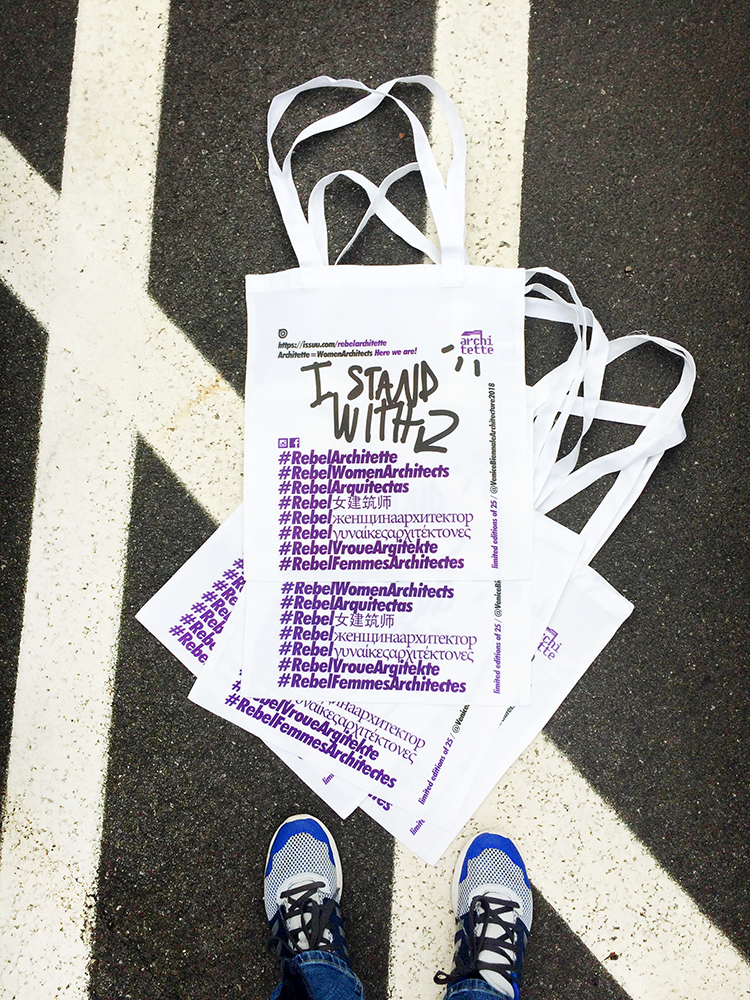 https://issuu.com/rebelarchitette
Architette=WomenArchitects Here we are!
archi
tette
I STAND
WITH
#RebelArchitette
#RebelWomenArchitects
#RebelArquitectas
#Rebel女建筑师
#Rebelженщинаархитектор
#Rebelγυναίκεςαρχιτέκτονες
#RebelVroueArgitekte
#RebelFemmesArchitectes
limited editions of 25 / @VeniceBiennaleArchitecture2018
#RebelWomenArchitects
#RebelArquitectas
#Rebel女建筑师
#Rebelженщинаархитектор
#Rebelγυναίκεςαρχιτέκτονες
#RebelVroueArgitekte
#RebelFemmesArchitectes
limited editions of 25 / @VeniceBi
archi
tette
#Reb
#Rebel
#RebelVroueArgitekte
#RebelFemmesArchitectes
limited editions of 25 / @Venice